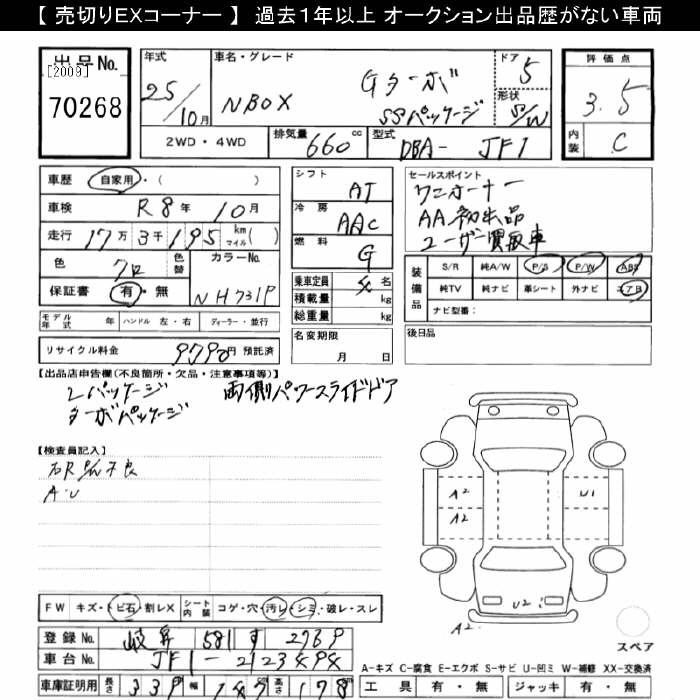 【 売切りEXコーナー 】 過去1年以上 オークション出品歴がない車両
出品No.
[2009]
70268
年式
25/10月
車名・グレード
N BOX
Gターボ
SSパッケージ
ドア
5
形状
S/W
2WD・4WD
排気量
660
cc
型式
DBA- JF1
評価点
3.5
内装
C
車歴
自家用・( )
車検
R8年10月
走行
17万3千195
km
マイル
( )
色
クロ
色替
カラーNo.
NH731P
保証書
有・無
モデル年式
年
ハンドル 左・右
ディーラー・並行
リサイクル料金
9790円 預託済
シフト
AT
冷房
AAC
燃料
G
乗車定員
4名
積載量
kg
総重量
kg
名変期限
月 日
セールスポイント
ワンオーナー
AA初出品
ユーザー買取車
装備品
S/R
純A/W
P/S
P/W
ABS
純TV
純ナビ
革シート
外ナビ
エアB
ナビ型番:
後日品
【出品店申告欄(不良箇所・欠品・注意事項等)】
Lパッケージ
両側パワースライドドア
ターボパッケージ
【検査員記入】
A・U
A2
A2
U1
U2
A2
スペア
FW
キズ・トビ石・割レX
シート内装
コゲ・穴・汚レ・シミ・破レ・スレ
登録No.
581 す 2769
車台No.
JF1-2123494
車庫証明用
長さ
339
幅
147
高さ
178
A-キズ C-腐食 E-エクボ S-サビ U-凹ミ W-補修 XX-交換済
工具
有・無
ジャッキ
有・無